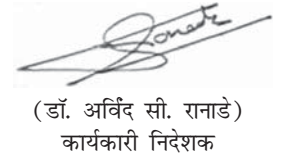 (डॉ. अर्विंद सी. रानाडे)
कार्यकारी निदेशक